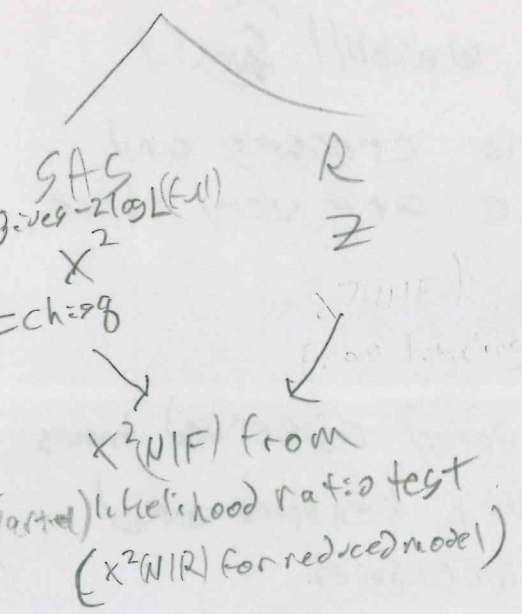 SAS R
gives -2logL(full) Z
X²
=chisq
X²(N|F) from
(Partial) likelihood ratio test
(X²(N|R) for reduced model)